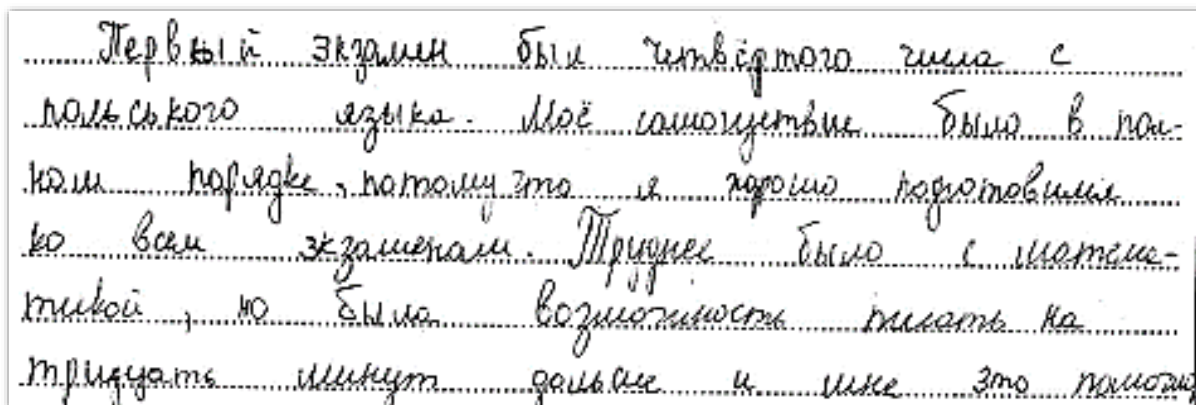 Первый экзамен был четвёртого числа с
польського языка. Моё самочуствие было в пол-
ном порядке, потому что я хорошо подготовился
ко всем экзаменам. Труднее было с матема-
тикой, но была возможность писать на
тридцать минут дольше и мне это помогло